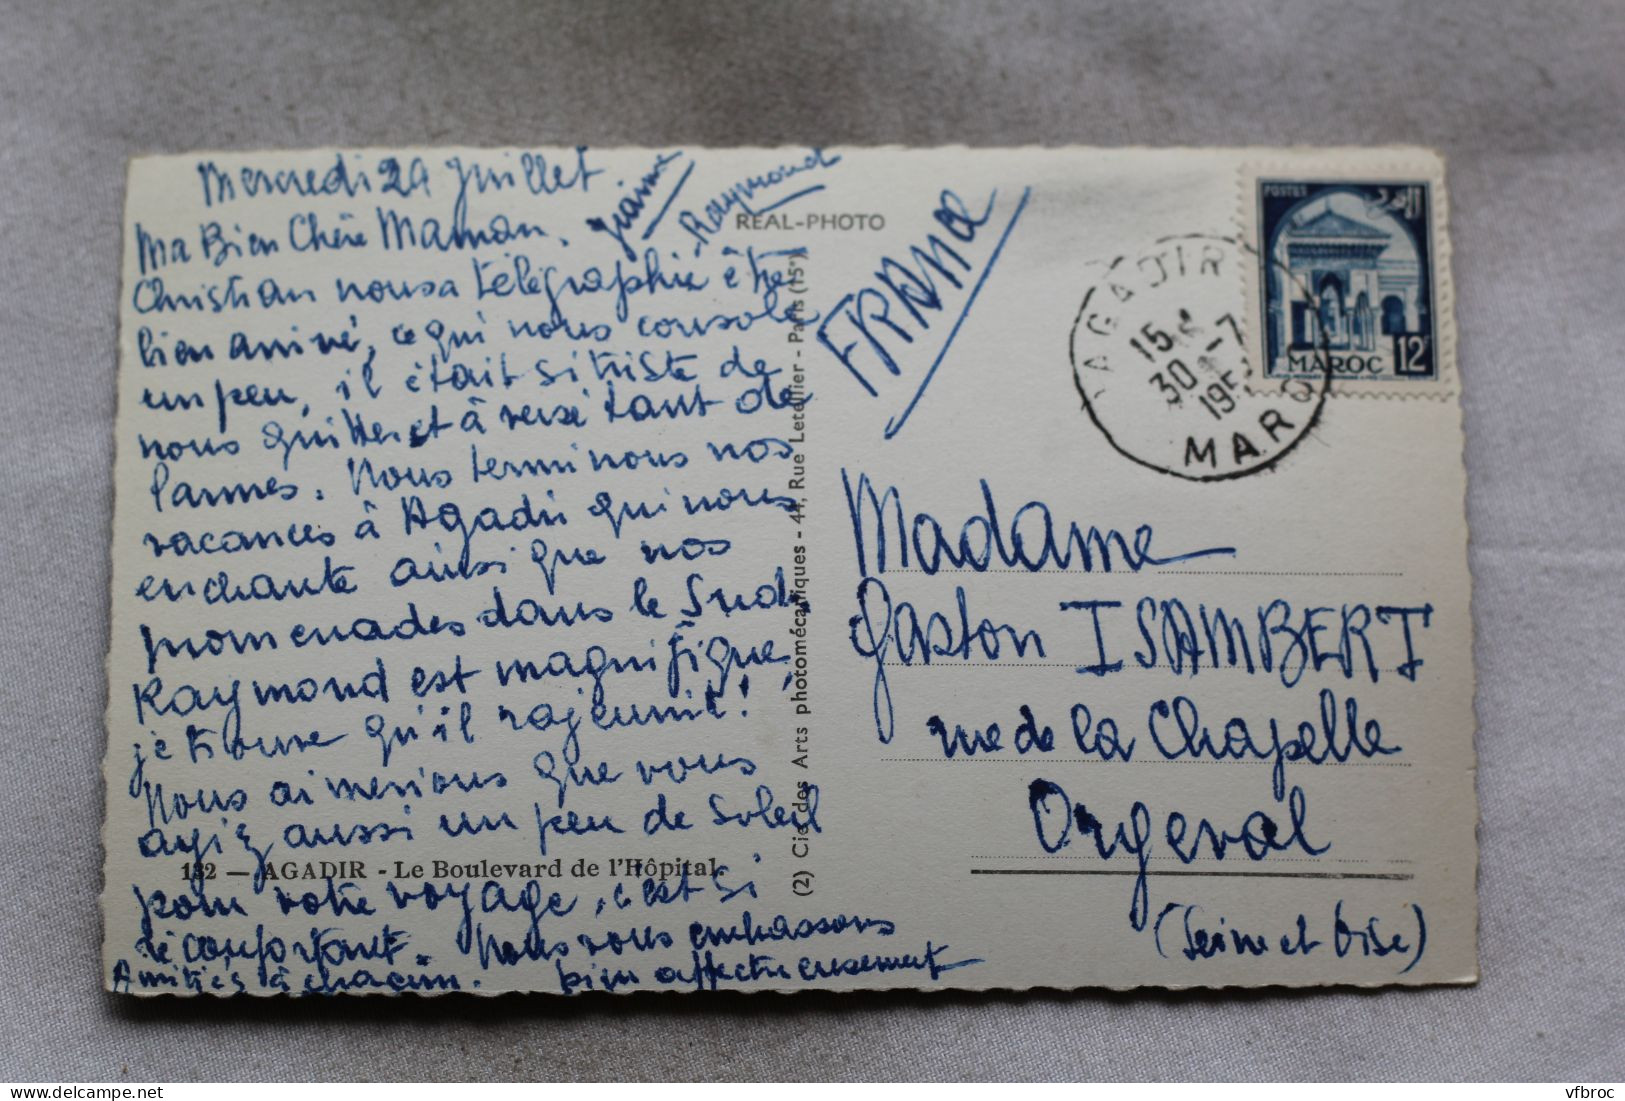 Mercredi 29 Juillet.
Ma Bien Chère Maman.
Christian nous a télégraphié être
bien arrivé, ce qui nous console
un peu, il était si triste de
nous quitter et à versé tant de
larmes. Nous terminons nos
vacances à Agadir qui nous
enchante ainsi que nos
promenades dans le Sud,
Raymond est magnifique,
je trouve qu'il rajeunit!
Nous aimerions que vous
ayiez aussi un peu de Soleil
pour votre voyage, c'est si
réconfortant. Nous vous embrassons
bien affectueusement
Amitiés à chacun.
Raymond
132 — AGADIR - Le Boulevard de l'Hôpital.
REAL-PHOTO
(2) Cie des Arts photomécaniques - 44, Rue Letellier - Paris (15e)
FRANCE
AGADIR
15
30 -7
195
MAROC
POSTES
البريد
MAROC
12F
Madame
Gaston ISAMBERT
rue de la Chapelle
Orgeval
(Seine et Oise)
vfbroc